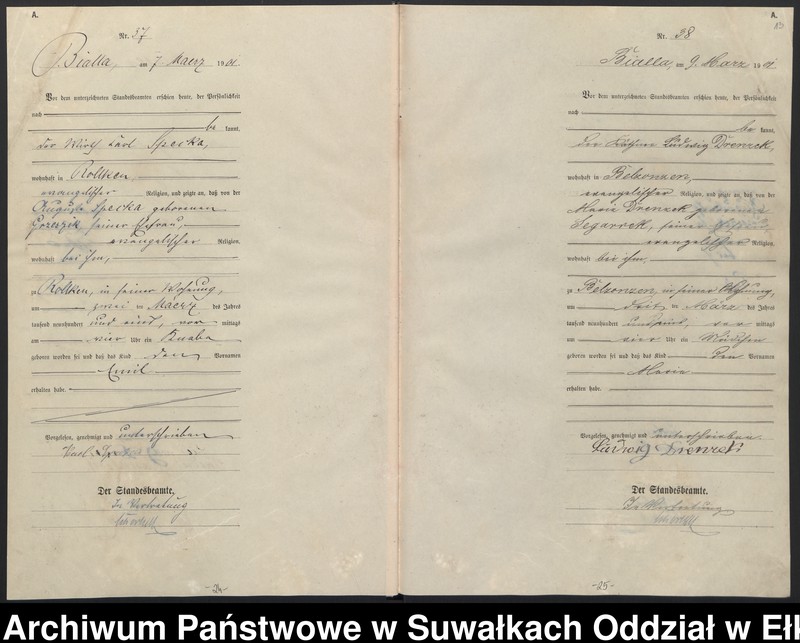 A.
Nr. 57
Bialla, am 7 Maerz 1901
Vor dem unterzeichneten Standesbeamten erschien heute, der Persönlichkeit
nach
be kannt,
der Wirth Carl Specka,
wohnhaft in Rollken,
evangelischer Religion, und zeigte an, daß von der
Auguste Specka geborenen
seiner Ehefrau,
evangelischer Religion,
wohnhaft bei ihm,
zu Rollken, in seiner Wohnung,
am zwei ten Maerz des Jahres
tausend neunhundert und eins, vor mittags
um vier Uhr ein Knabe
geboren worden sei und daß das Kind den Vornamen
Emil
erhalten habe.
Vorgelesen, genehmigt und unterschrieben
Karl
Der Standesbeamte,
In Vertretung
-24-
A.
Nr. 38
Bialla, am 9. März 1901
Vor dem unterzeichneten Standesbeamten erschien heute, der Persönlichkeit
nach
be kannt,
der Käthner Ludwig Drenzek,
wohnhaft in Belzonzen,
evangelischer Religion, und zeigte an, daß von der
Marie Drenzek geborenen
seiner Ehefrau,
evangelischer Religion,
wohnhaft bei ihm,
zu Belzonzen, in seiner Wohnung,
am ten März des Jahres
tausend neunhundert und eins, vor mittags
um vier Uhr ein Mädchen
geboren worden sei und daß das Kind den Vornamen
Marie
erhalten habe.
Vorgelesen, genehmigt und unterschrieben
Ludwig Drenzek
Der Standesbeamte.
In Vertretung
-25-
Archiwum Państwowe w Suwałkach Oddział w Ełk